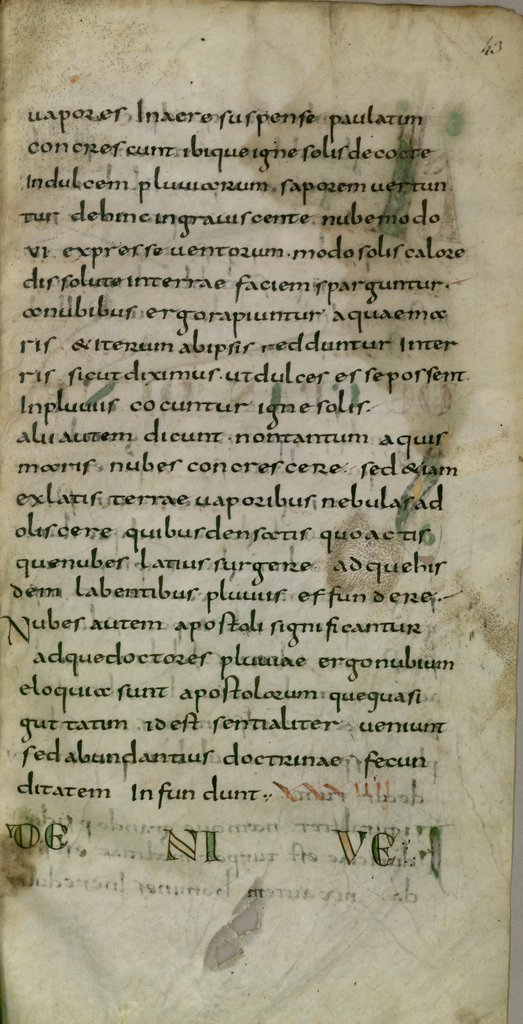 43
uapores Inaere suspense paulatim
concrescunt ibique igne solis decocte
Indulcem pluuiarum saporem uertun
tur dehinc ingrauiscente nube modo
ui expresse uentorum · modo solis calore
dissolute interrae faciem sparguntur ·
a nubibus ergo rapiuntur aquae ma
ris & iterum ab ipsis redduntur Inter
ris sicut diximus · ut dulces esse possent
Inpluuiis cocuntur igne solis ·
alii autem dicunt · non tantum aquis
maris nubes concrescere · sed & iam
exlatis terrae uaporibus nebulas ad
oliscere quibus densatis quoactis
que nubes · latius surgere adque his
dem labentibus pluuiis effundere ·
Nubes autem apostoli significantur
adque doctores pluuiae ergo nubium
eloquia sunt apostolorum que quasi
guttatim id est sentialiter ueniunt
sed abundantius doctrinae fecun
ditatem Infundunt ·
DE NIVE